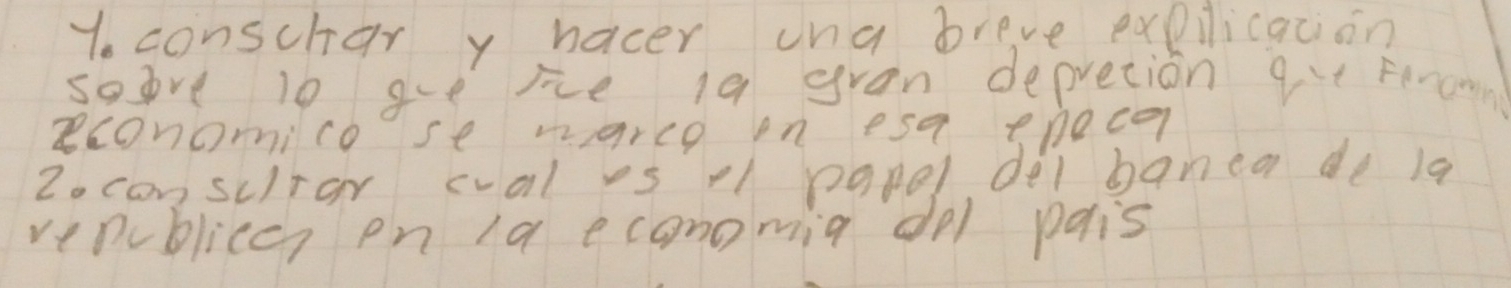 1. consultar y hacer una breve explicación
sobre lo que fue la gran depreción que Fenomn
economico se marco en esa epoca
2. consultar cual es el papel del banca de la
republica en la economia del pais